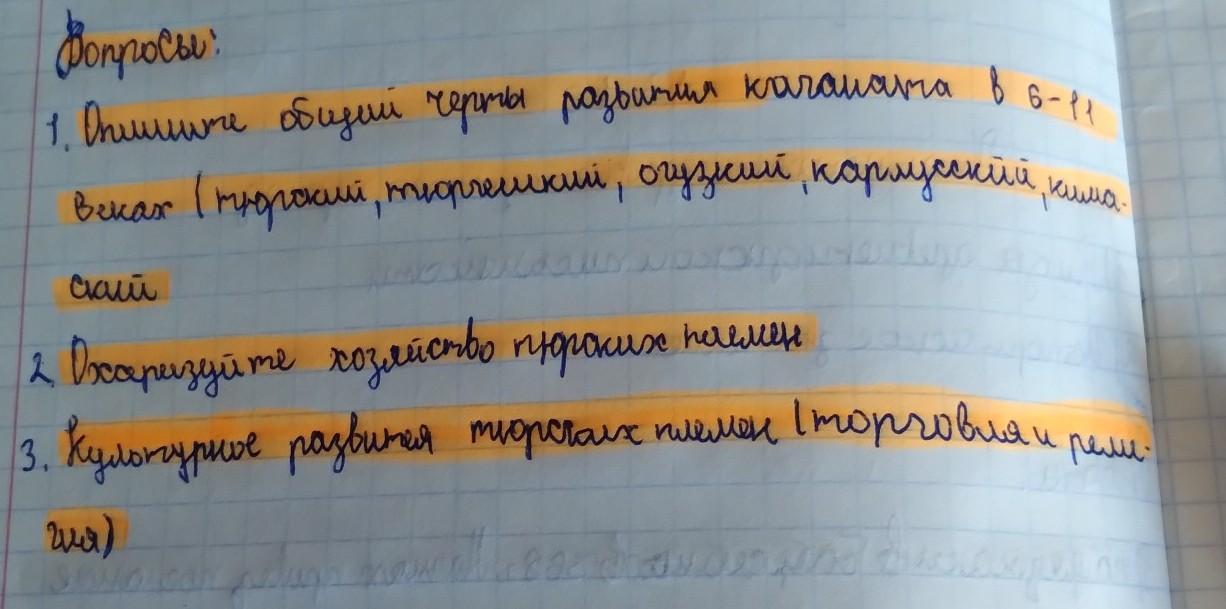 Вопросы:
1. Опишите общий черты развития каганата в 6-11
веках (тюрский, тюргешкий, огузкий, карлусский, кима-
ский
2. Охаризуйте хозяйство тюрских племен
3. Культурное развитея тюрских племен (торговля и рели-
гия)